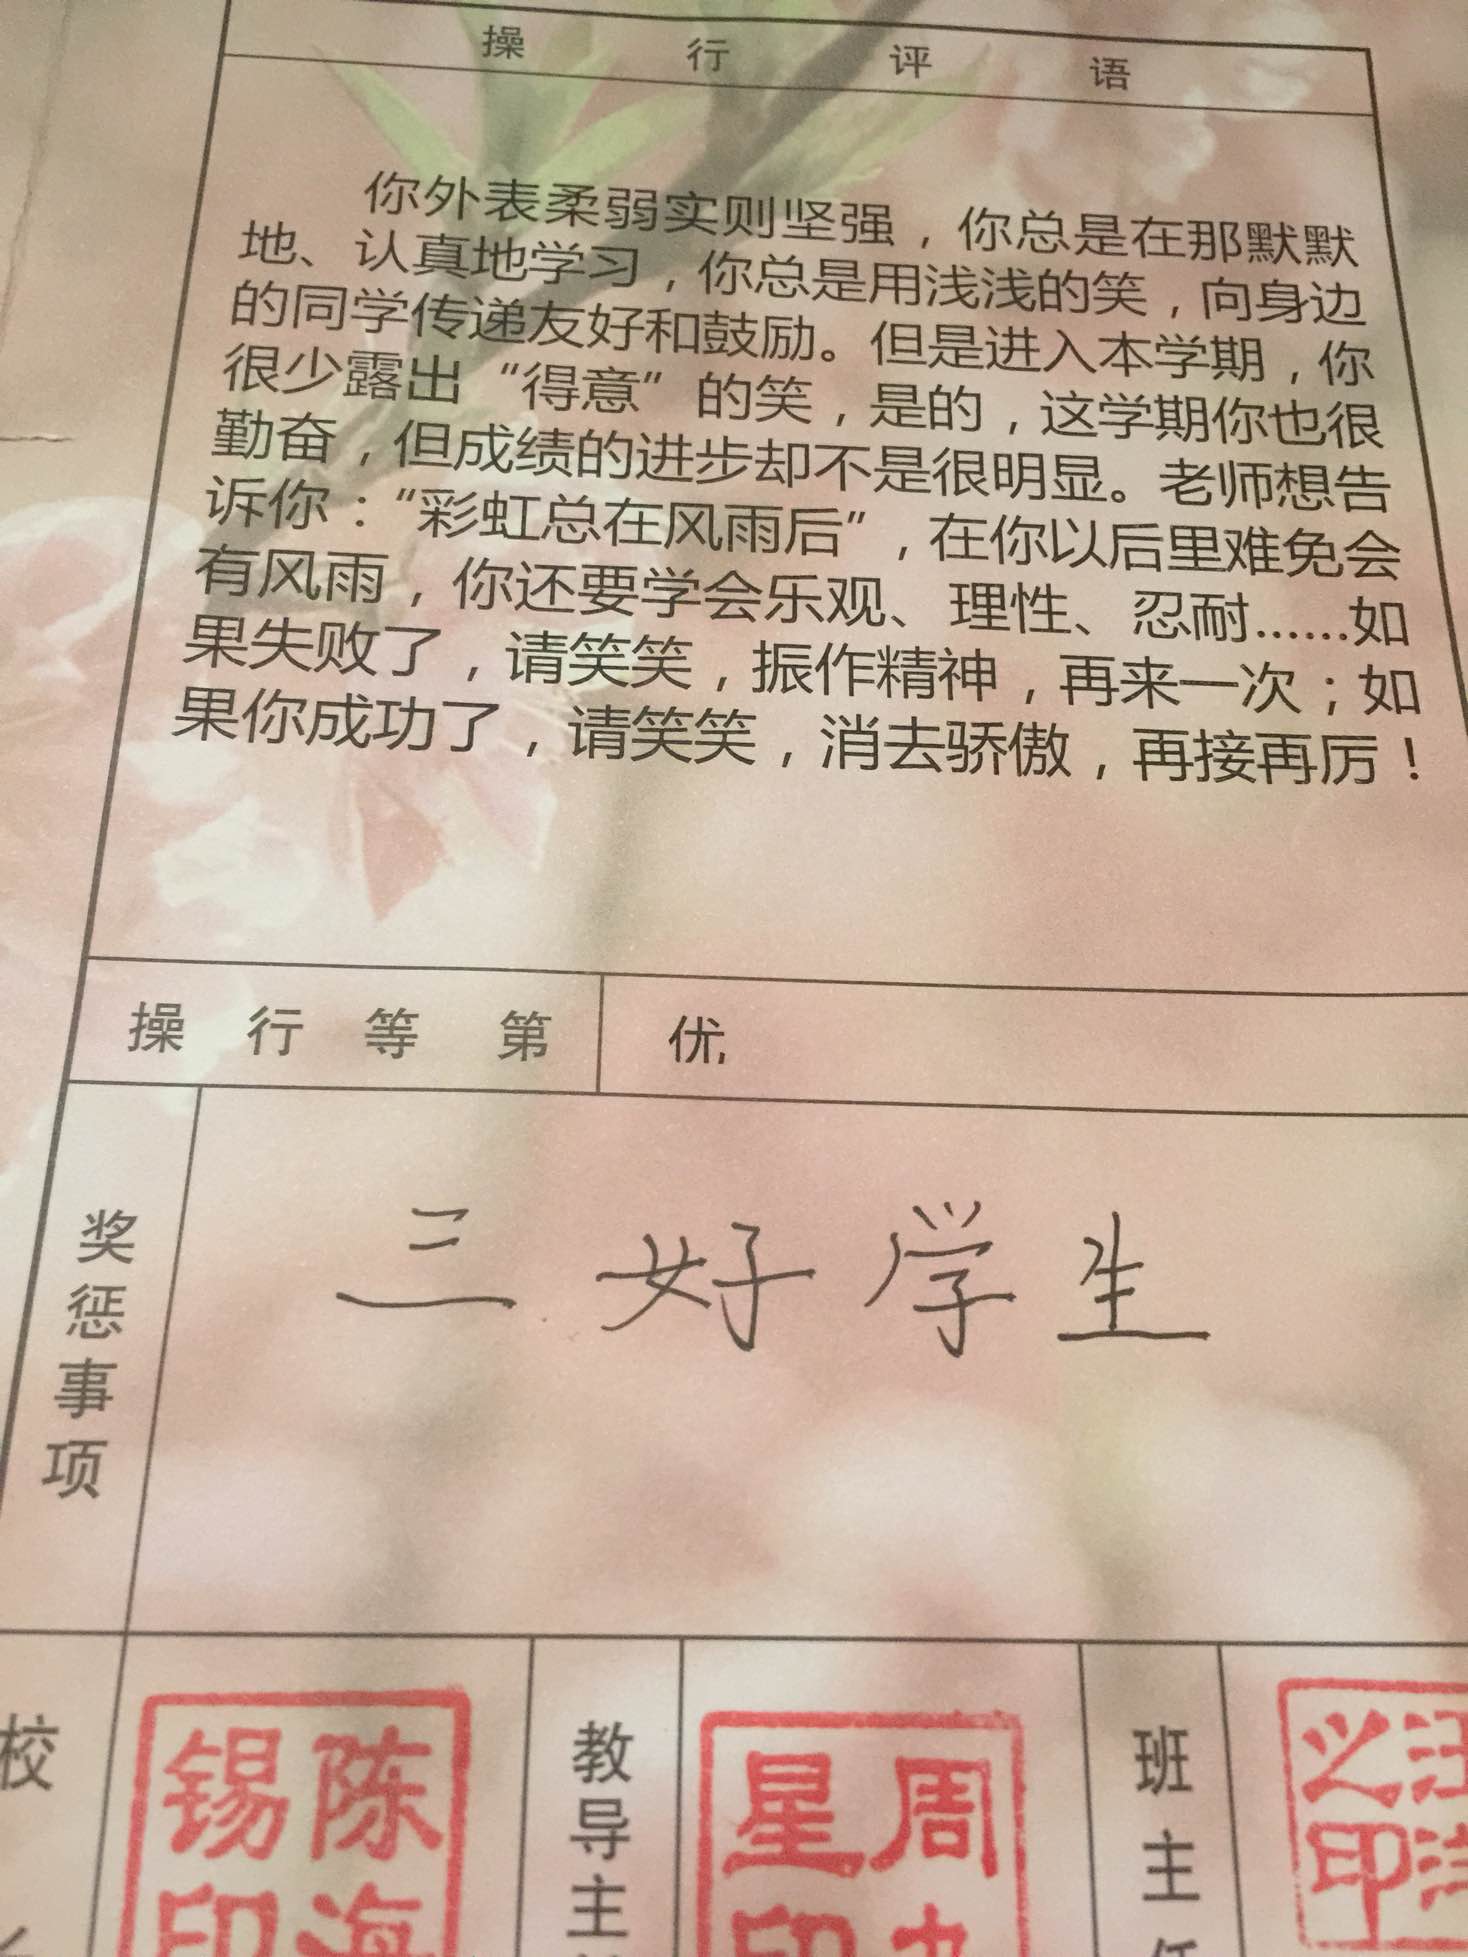 操行评语
你外表柔弱实则坚强，你总是在那默默
地、认真地学习，你总是用浅浅的笑，向身边
的同学传递友好和鼓励。但是进入本学期，你
很少露出“得意”的笑，是的，这学期你也很
勤奋，但成绩的进步却不是很明显。老师想告
诉你：“彩虹总在风雨后”，在你以后里难免会
有风雨，你还要学会乐观、理性、忍耐……如
果失败了，请笑笑，振作精神，再来一次；如
果你成功了，请笑笑，消去骄傲，再接再厉！
操行等第
优,
奖惩事项
三好学生
校
陈海锡印
教导主
周星印
班主任
汪之印